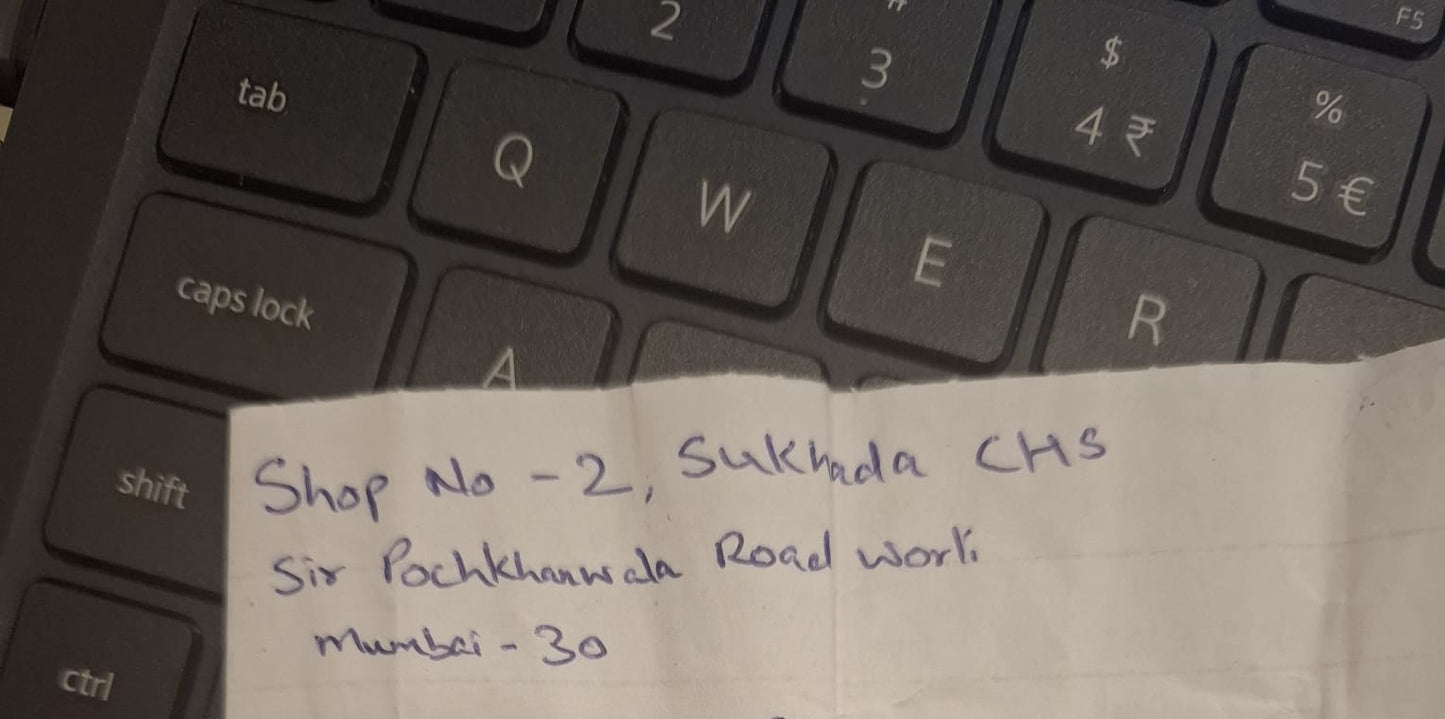 2 3 $ F5
tab Q W E R 4 ₹ % 5 €
caps lock A
shift
ctrl
Shop No - 2, Sukhada CHS
Sir Pochkhanwala Road Worli
Mumbai - 30